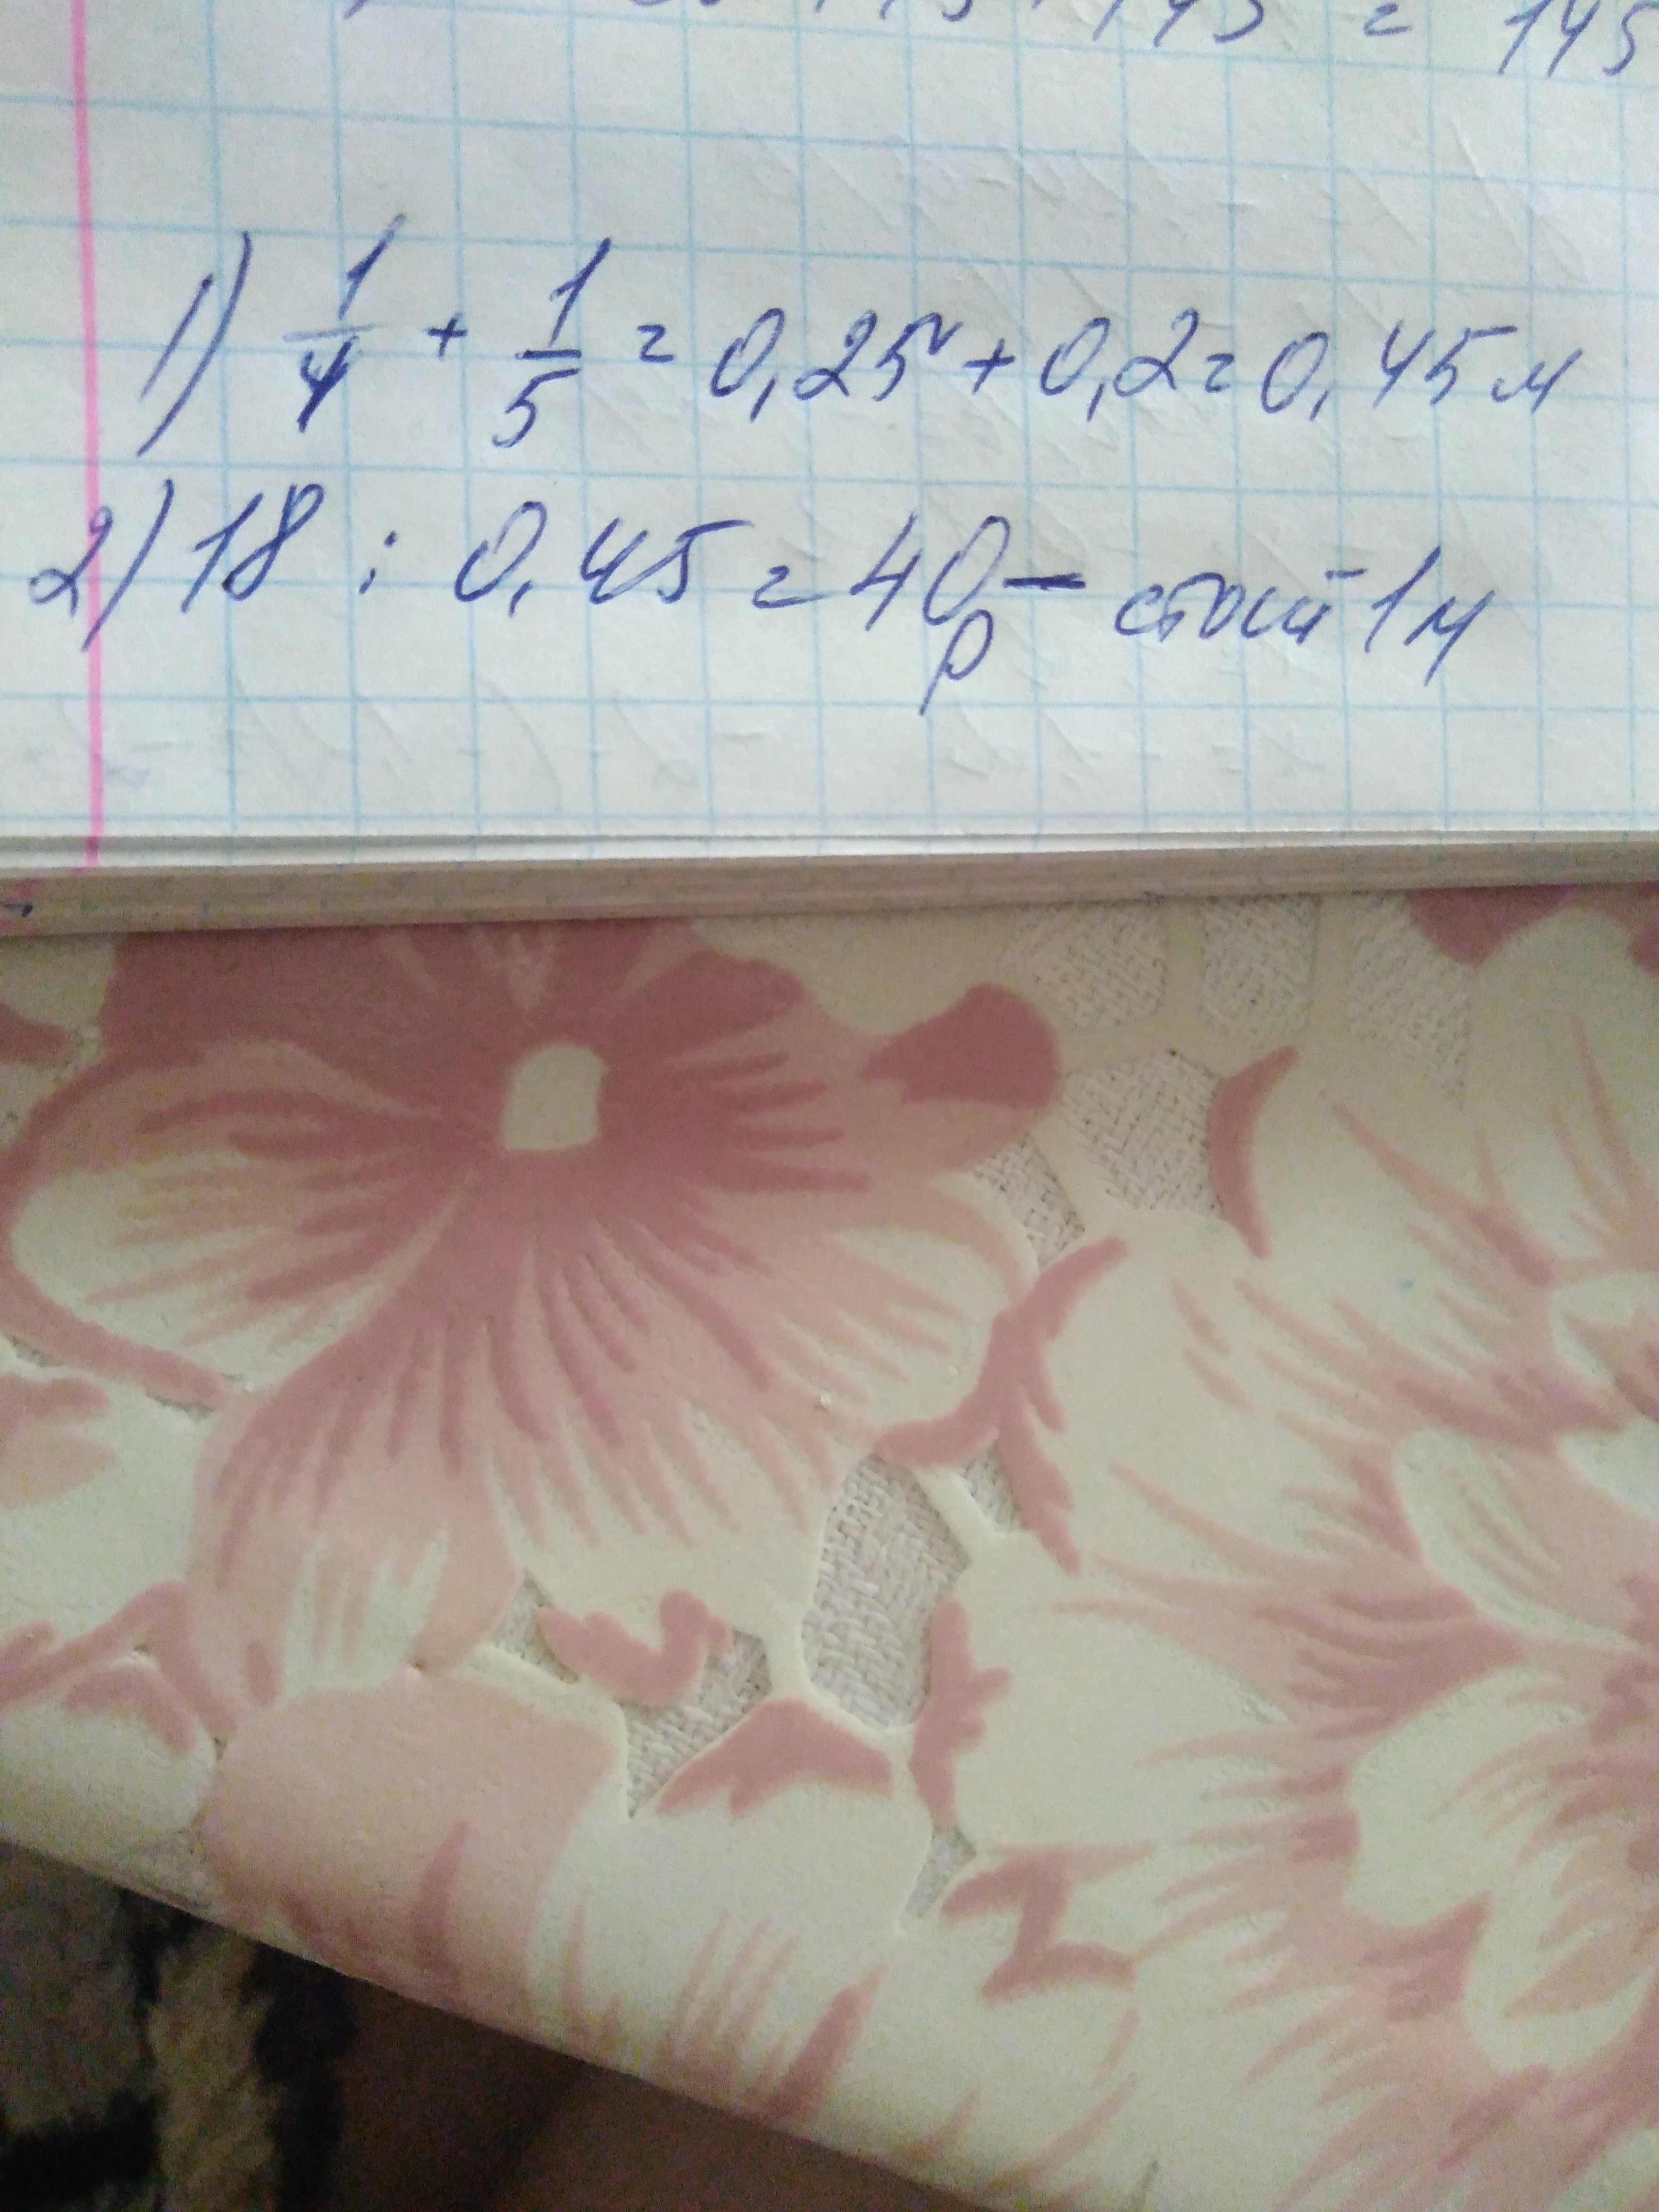 = 145
1) 1/4 + 1/5 = 0,25 + 0,2 = 0,45 м
2) 18 : 0,45 = 40 р — стоит 1 м